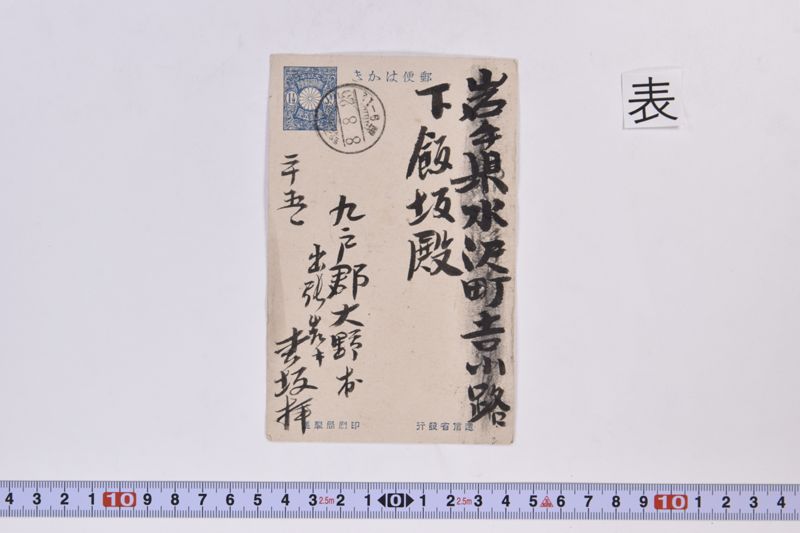 郵便はかき
岩手県水沢町吉小路
下飯坂殿
九戸郡大野村
出張
二十五
逓信省發行
印刷局製造
表
4 3 2 1 10 9 8 7 6 5 4 3 2.5m 2 1 0 1 2 2.5m 3 4 5 6 7 8 9 10 1 2 3 4